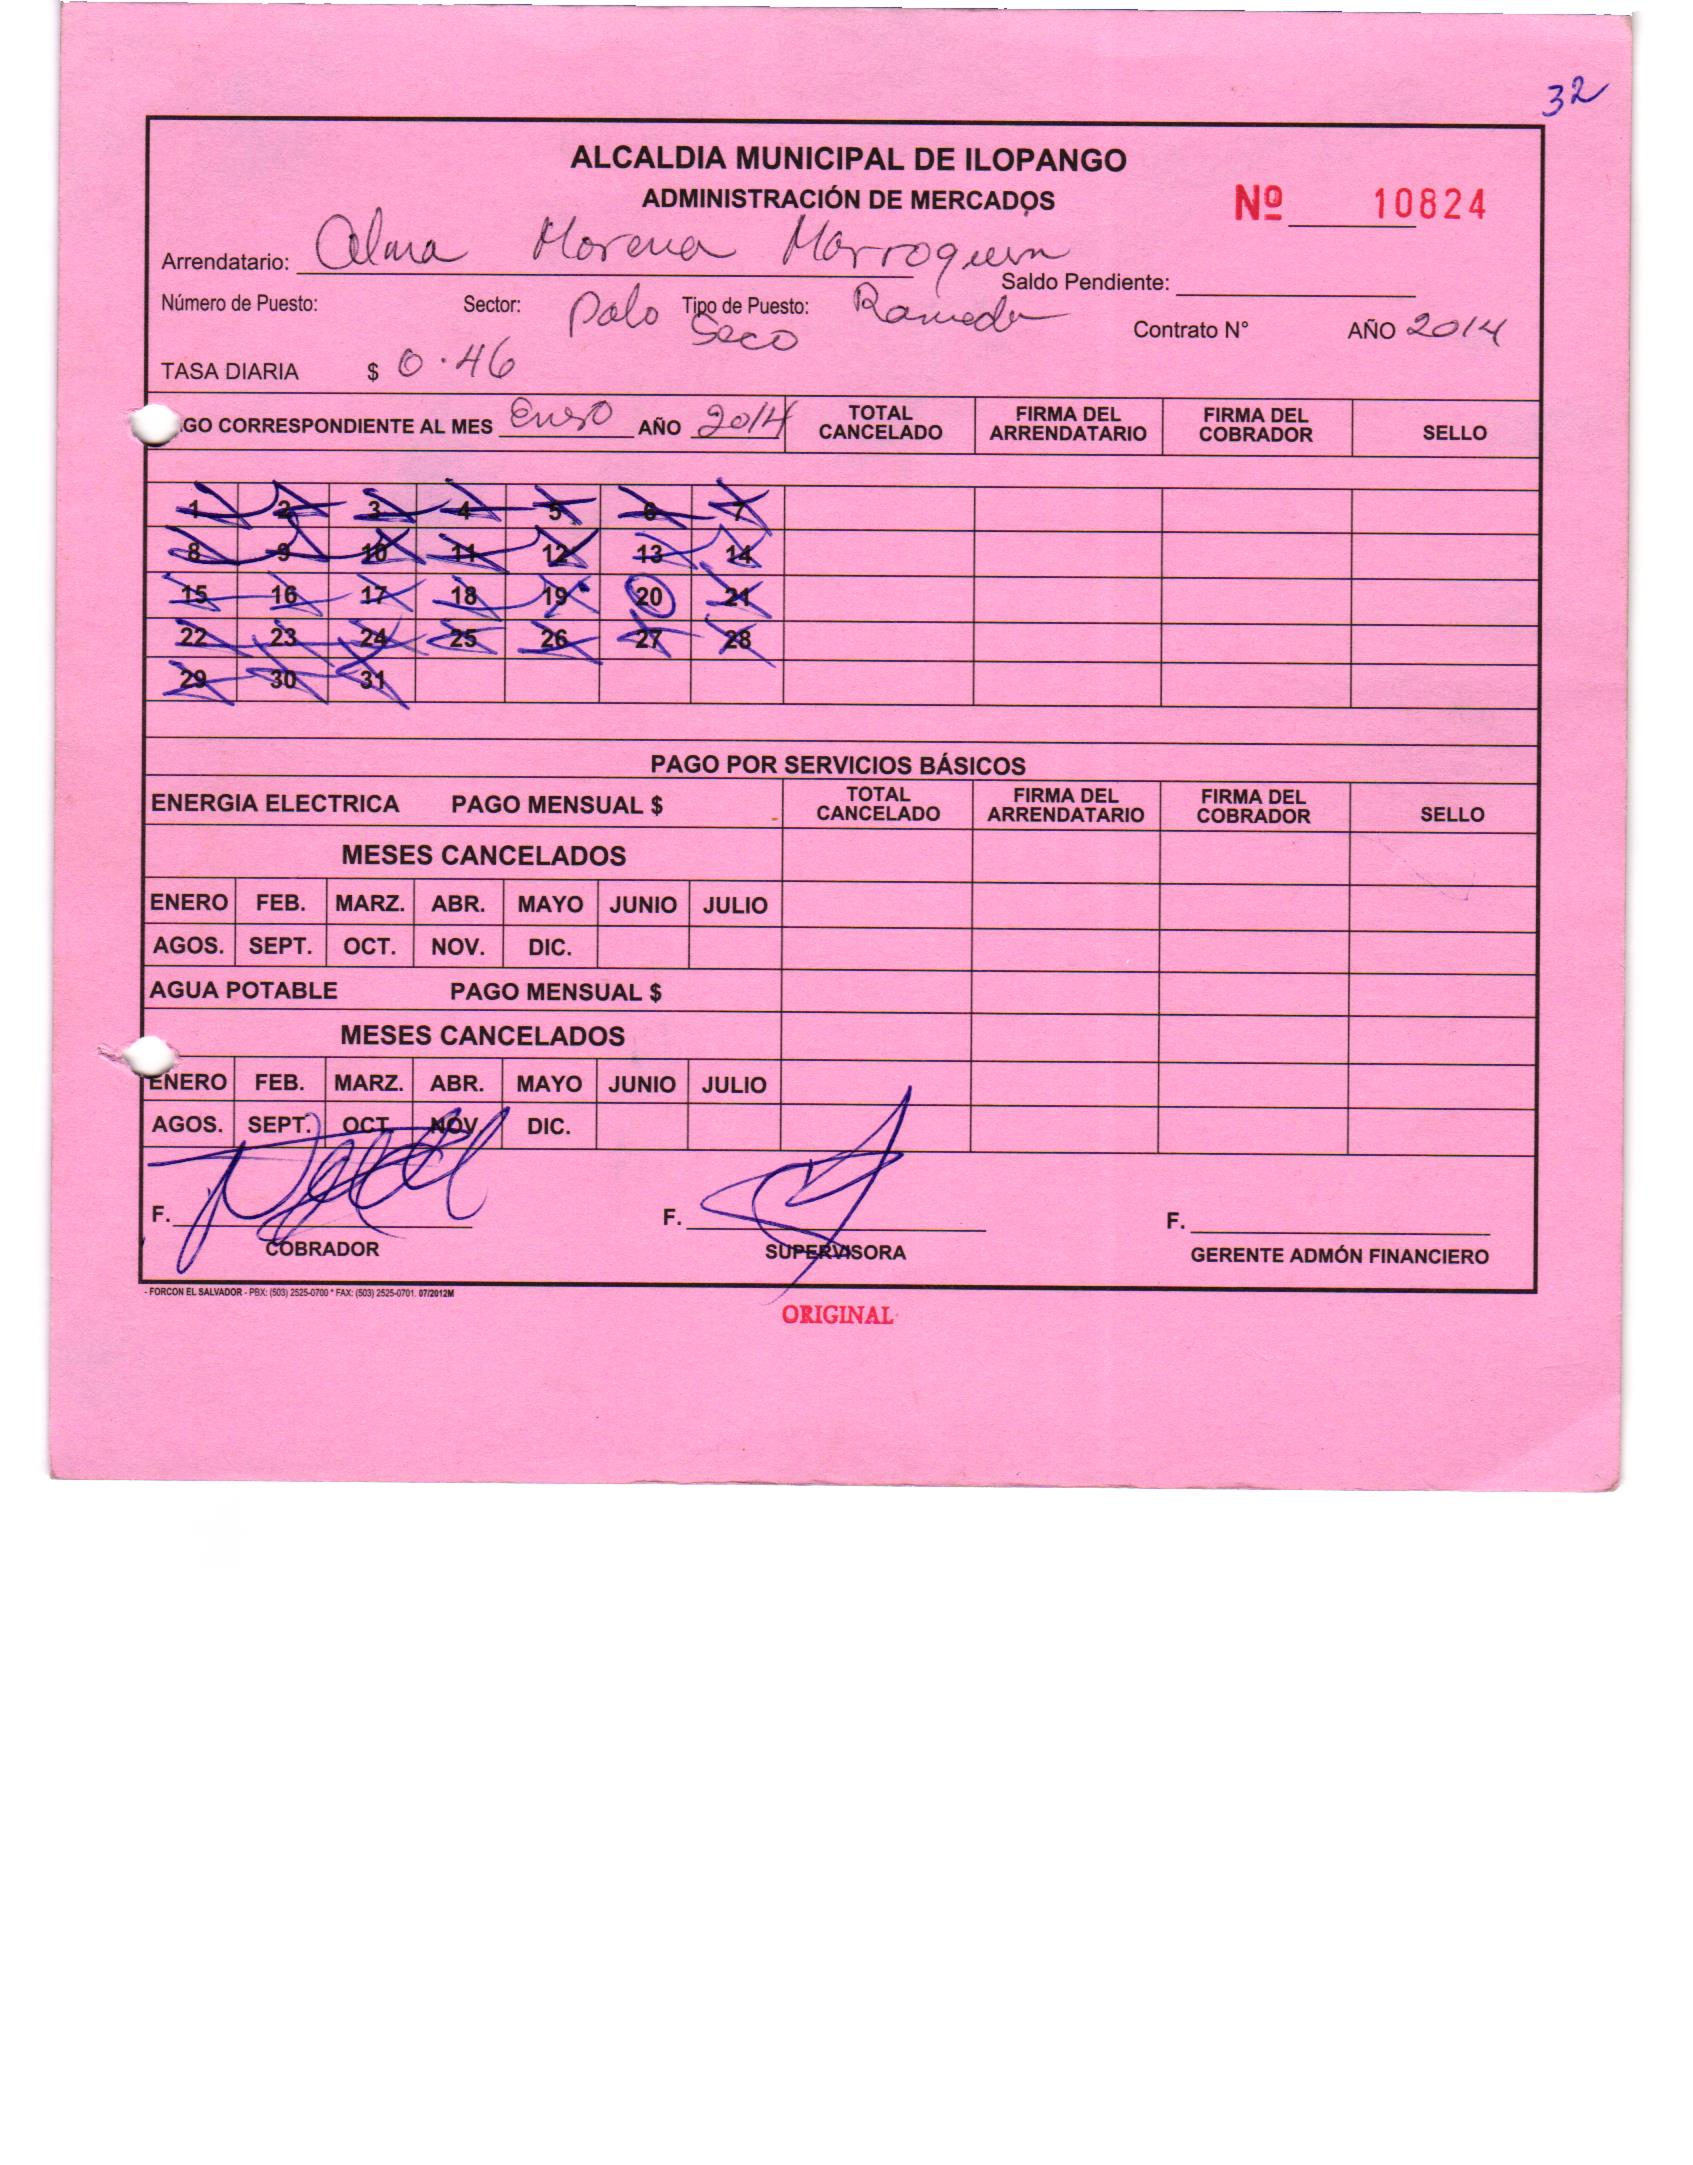 32
ALCALDIA MUNICIPAL DE ILOPANGO
ADMINISTRACIÓN DE MERCADOS
Nº 10824
Arrendatario: Alma Morena Marroquin
Saldo Pendiente:
Número de Puesto: Sector: Palo Seco Tipo de Puesto: Rameda
Contrato N° AÑO 2014
TASA DIARIA $ 0.46
GO CORRESPONDIENTE AL MES Enero AÑO 2014 TOTAL CANCELADO FIRMA DEL ARRENDATARIO FIRMA DEL COBRADOR SELLO
1 2 3 4 5 6 7
8 9 10 11 12 13 14
15 16 17 18 19 20 21
22 23 24 25 26 27 28
29 30 31
PAGO POR SERVICIOS BÁSICOS
ENERGIA ELECTRICA PAGO MENSUAL $ TOTAL CANCELADO FIRMA DEL ARRENDATARIO FIRMA DEL COBRADOR SELLO
MESES CANCELADOS
ENERO FEB. MARZ. ABR. MAYO JUNIO JULIO
AGOS. SEPT. OCT. NOV. DIC.
AGUA POTABLE PAGO MENSUAL $
MESES CANCELADOS
ENERO FEB. MARZ. ABR. MAYO JUNIO JULIO
AGOS. SEPT. OCT. NOV. DIC.
F. F. F.
COBRADOR SUPERVISORA GERENTE ADMÓN FINANCIERO
- FORCON EL SALVADOR - PBX: (503) 2525-0700 * FAX: (503) 2525-0701. 07/2012M
ORIGINAL